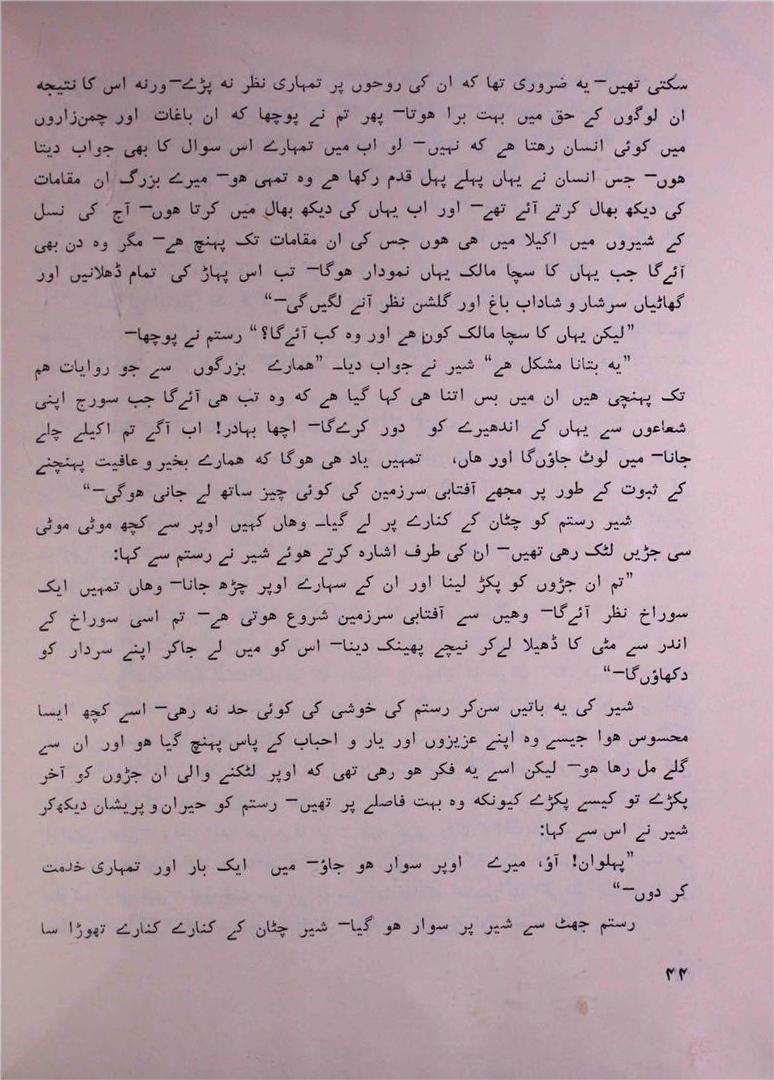 سکتی تھیں— یہ ضروری تھا کہ ان کی روحوں پر تمہاری نظر نہ پڑے— ورنہ اس کا نتیجہ
ان لوگوں کے حق میں بہت برا ہوتا— پھر تم نے پوچھا کہ ان باغات اور چمن‌زاروں
میں کوئی انسان رہتا ہے کہ نہیں— لو اب میں تمہارے اس سوال کا بھی جواب دیتا
ہوں— جس انسان نے یہاں پہلے پہل قدم رکھا ہے وہ تمہی ہو— میرے بزرگ ان مقامات
کی دیکھ بھال کرتے آئے تھے— اور اب یہاں کی دیکھ بھال میں کرتا ہوں— آج کی نسل
کے شیروں میں اکیلا میں ہی ہوں جس کی ان مقامات تک پہنچ ہے— مگر وہ دن بھی
آئے‌گا جب یہاں کا سچا مالک یہاں نمودار ہوگا— تب اس پہاڑ کی تمام ڈھلانیں اور
گھاٹیاں سرشار و شاداب باغ اور گلشن نظر آنے لگیں‌گی—“
”لیکن یہاں کا سچا مالک کون ہے اور وہ کب آئے‌گا؟“ رستم نے پوچھا—
”یہ بتانا مشکل ہے“ شیر نے جواب دیا— ”ہمارے بزرگوں سے جو روایات ہم
تک پہنچی ہیں ان میں بس اتنا ہی کہا گیا ہے کہ وہ تب ہی آئے‌گا جب سورج اپنی
شعاعوں سے یہاں کے اندھیرے کو دور کرے‌گا— اچھا بہادر! اب آگے تم اکیلے چلے
جانا— میں لوٹ جاؤں‌گا اور ہاں، تمہیں یاد ہی ہوگا کہ ہمارے بخیر و عافیت پہنچنے
کے ثبوت کے طور پر مجھے آفتابی سرزمین کی کوئی چیز ساتھ لے جانی ہوگی—“
شیر رستم کو چٹان کے کنارے پر لے گیا— وہاں کہیں اوپر سے کچھ موٹی موٹی
سی جڑیں لٹک رہی تھیں— ان کی طرف اشارہ کرتے ہوئے شیر نے رستم سے کہا:
”تم ان جڑوں کو پکڑ لینا اور ان کے سہارے اوپر چڑھ جانا— وہاں تمہیں ایک
سوراخ نظر آئے‌گا— وہیں سے آفتابی سرزمین شروع ہوتی ہے— تم اسی سوراخ کے
اندر سے مٹی کا ڈھیلا لے‌کر نیچے پھینک دینا— اس کو میں لے جاکر اپنے سردار کو
دکھاؤں‌گا—“
شیر کی یہ باتیں سن‌کر رستم کی خوشی کی کوئی حد نہ رہی— اسے کچھ ایسا
محسوس ہوا جیسے وہ اپنے عزیزوں اور یار و احباب کے پاس پہنچ گیا ہو اور ان سے
گلے مل رہا ہو— لیکن اسے یہ فکر ہو رہی تھی کہ اوپر لٹکنے والی ان جڑوں کو آخر
پکڑے تو کیسے پکڑے کیونکہ وہ بہت فاصلے پر تھیں— رستم کو حیران و پریشان دیکھ‌کر
شیر نے اس سے کہا:
”پہلوان! آؤ، میرے اوپر سوار ہو جاؤ— میں ایک بار اور تمہاری خدمت
کر دوں—“
رستم جھٹ سے شیر پر سوار ہو گیا— شیر چٹان کے کنارے کنارے تھوڑا سا
۴۴